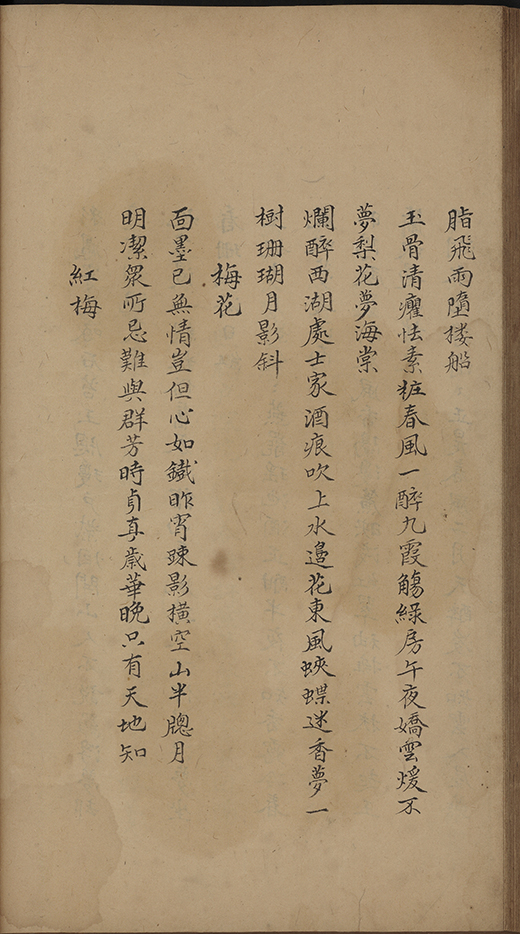 脂飛雨墮楼船
玉骨清癯怯素粧春風一醉九霞觴綠房午夜嬌雲煖不
夢梨花夢海棠
爛醉西湖處士家酒痕吹上水邉花東風蛺蝶迷香夢一
樹珊瑚月影斜
梅花
面墨已無情豈但心如鐡昨宵踈影橫空山半牕月
明潔衆所忌難與群芳時貞真歲華晚只有天地知
紅梅